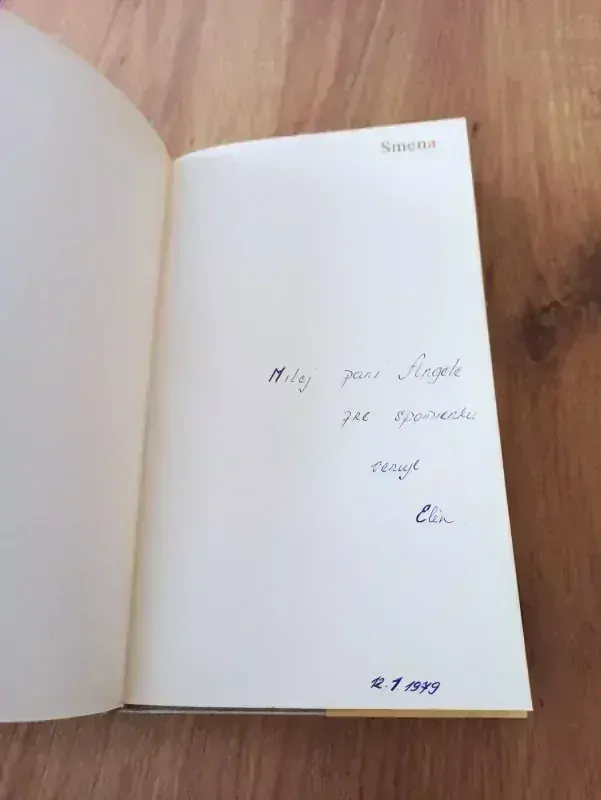 Smena
Milej pani Angele
pre spomienku
venuje
Elen
12.1.1979